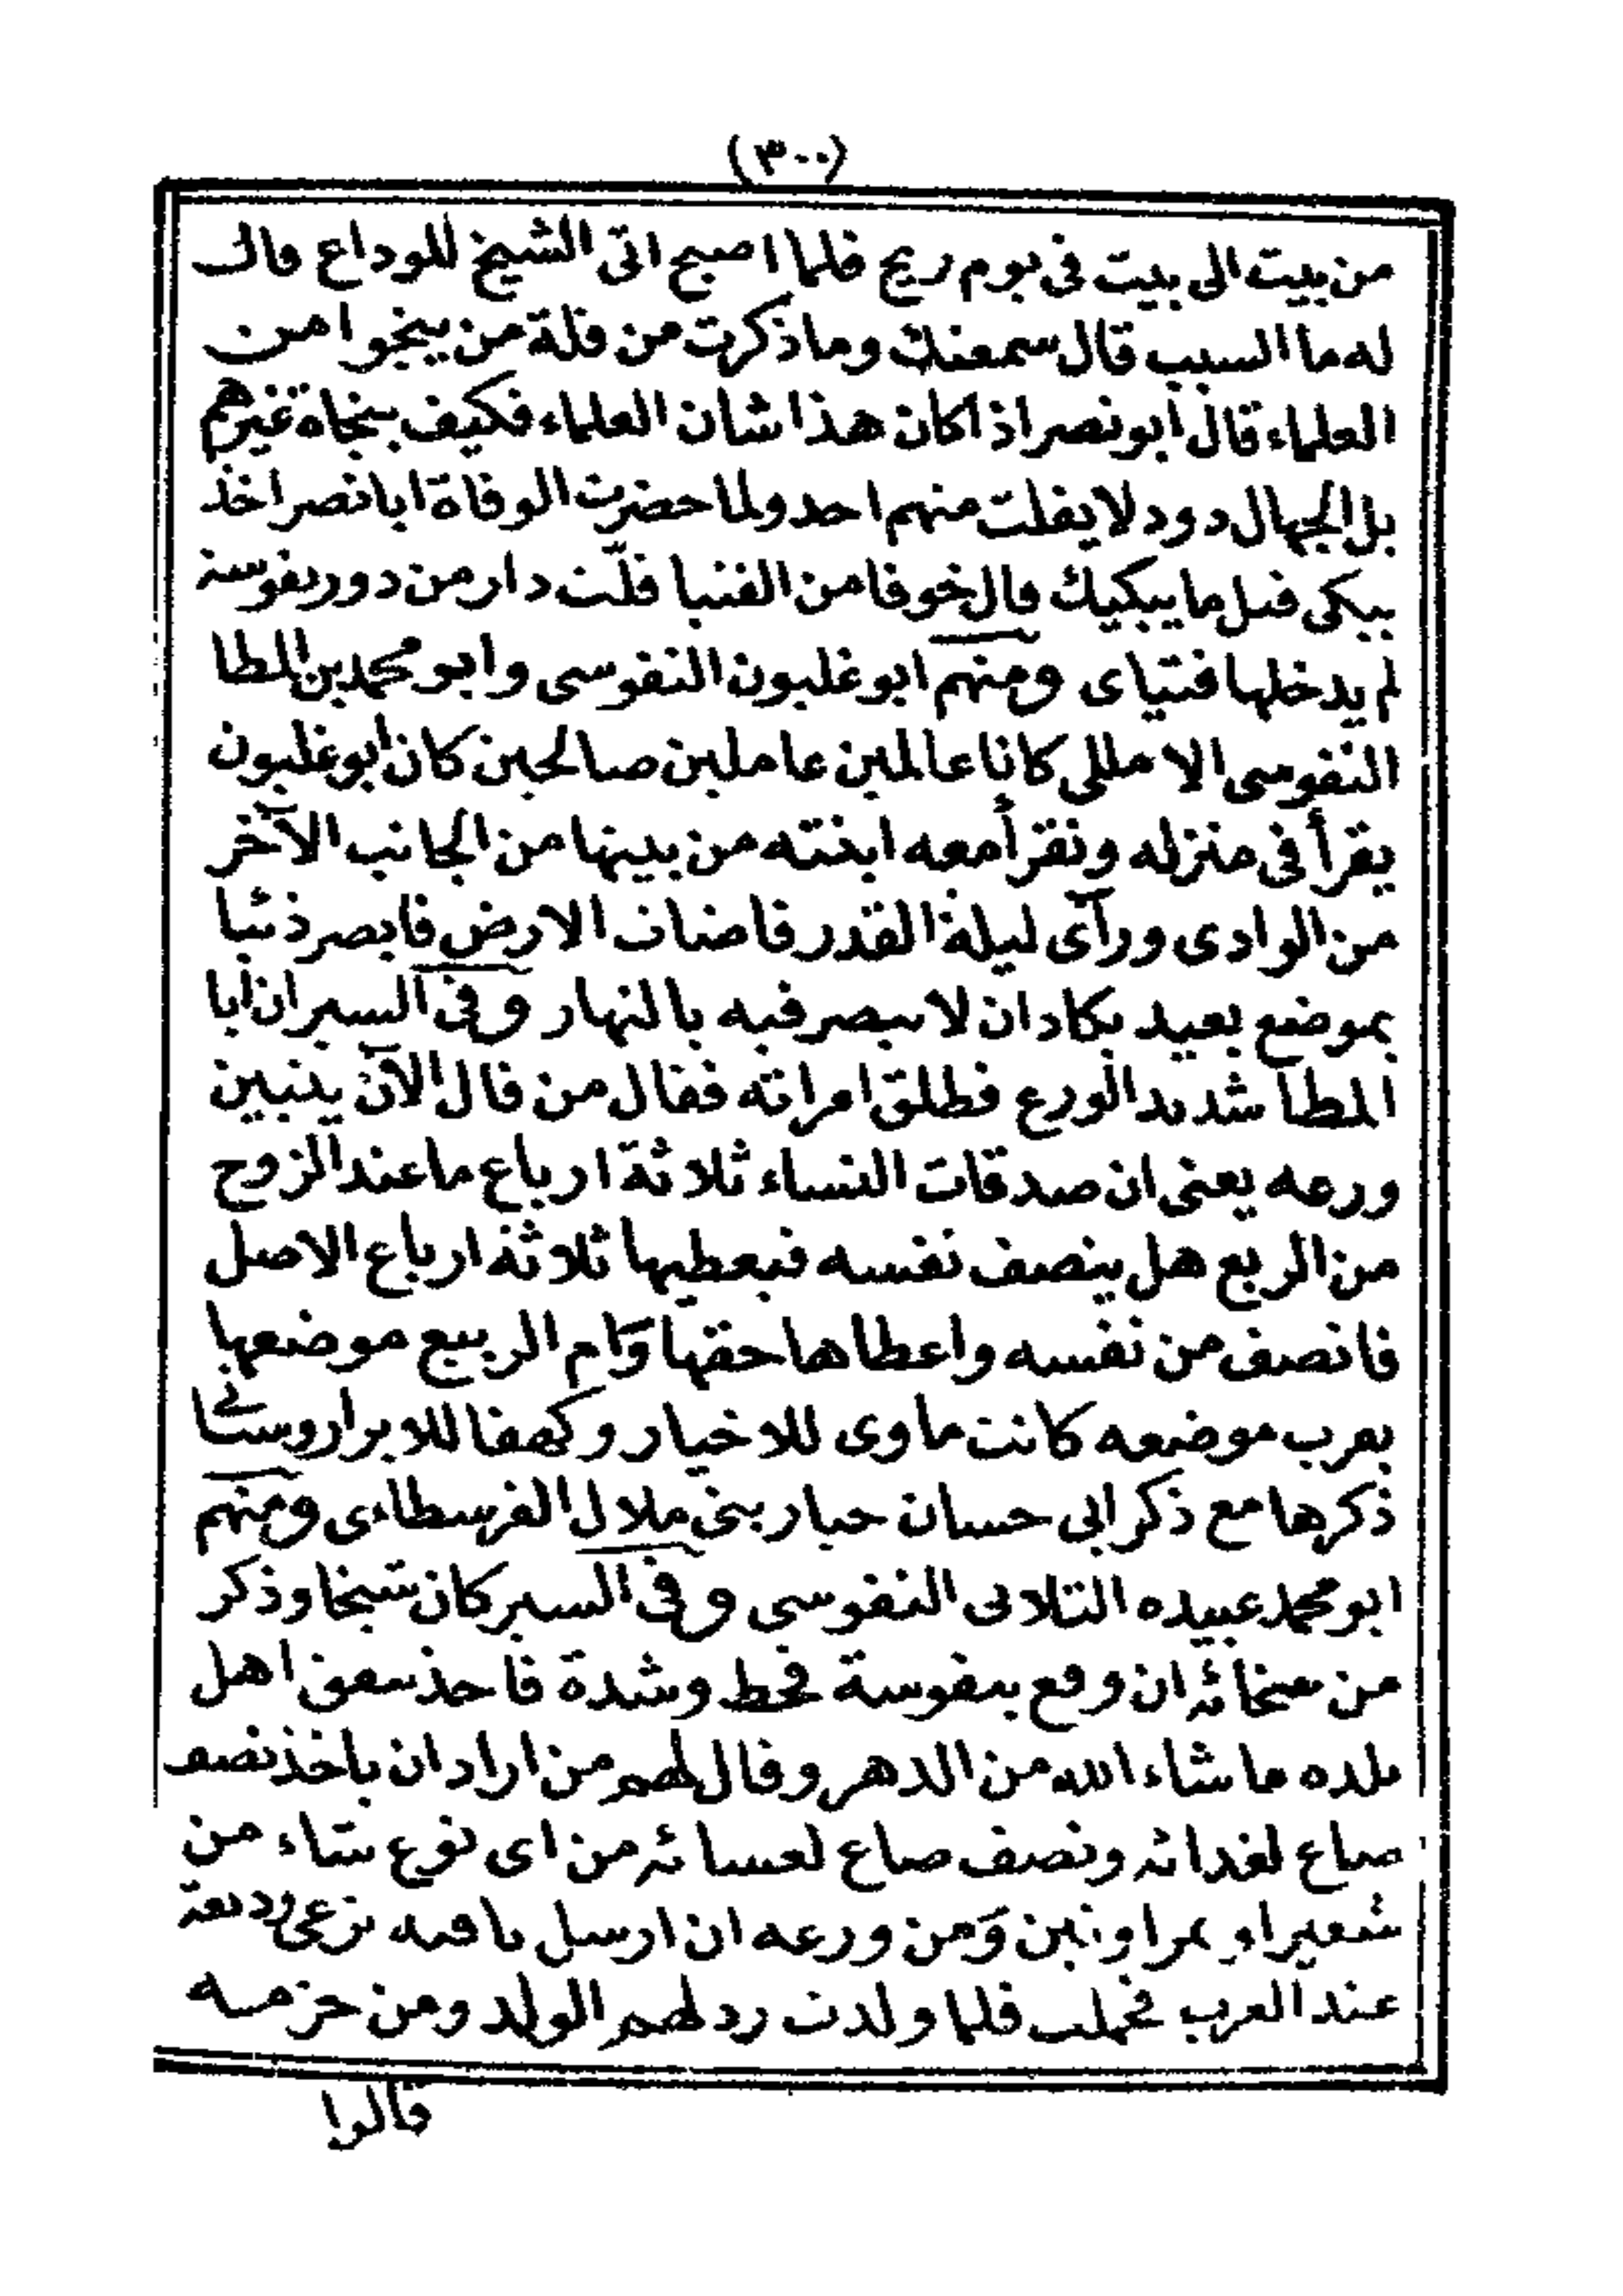 (٣٠٠)
من بيت الى بيت فى يوم ريح فلما اصبح اتى الشيخ للوداع قال
له ما السبب قال سمعنك وما ذكرت من قلة من ينجوا من
العلماء قال ابو نصر اذا كان هذا شان العلماء فكيف بنجاة غيرهم
بل الجهال دود لا يفلت منهم احد ولما حضرت الوفاة ابا نصر اخذ
يبكى فسل ما يبكيك قال خوفا من الفتيا قلّت دار من دور نفوسة
لم يدخلها فتياى ومنهم ابو غلبون النفوسى وابو محمد بن المطا
النفوسى الامللى كانا عالمين عاملين صالحين كان ابو غلبون
يقرأ فى منزله وتقرأ معه ابنته من بيتها من الجانب الآخر
من الوادى ورآى ليلة القدر فاضاءت الارض فابصر ذئبا
بموضع بعيد يكاد ان لا يبصر فيه بالنهار وفى السير ان ابا
المطا شديد الورع فطلق امراته فقال من قال الآن يتبين
ورعه يعنى ان صدقات النساء ثلاثة ارباع ما عند الزوج
من الربع هل ينصف نفسه فيعطيها ثلاثة ارباع الاصل
فانصف من نفسه واعطاها حقها وام الربيع موضعها
بقرب موضعه كانت ماوى للاخيار وكهفا للابرار وستاتى
ذكرها مع ذكر ابى حسان حيار بنى ملال الفرسطاءى ومنهم
ابو محمد عبيده التلاتى النفوسى وفى السير كان شيخا وذكر
من سخائه ان وقع بنفوسة قحط وشدة فاخذ سعف اهل
بلده ما شاء الله من الدهر وقال لهم من اراد ان ياخذ نصف
صاع لغدائه ونصف صاع لعشائه من اى نوع شاء من
شعير او تمر او تين ومن ورعه ان ارسل ناقته ترعى وديعة
عند العرب فحملت فلما ولدت رد لهم الولد ومن حزمه
قالوا